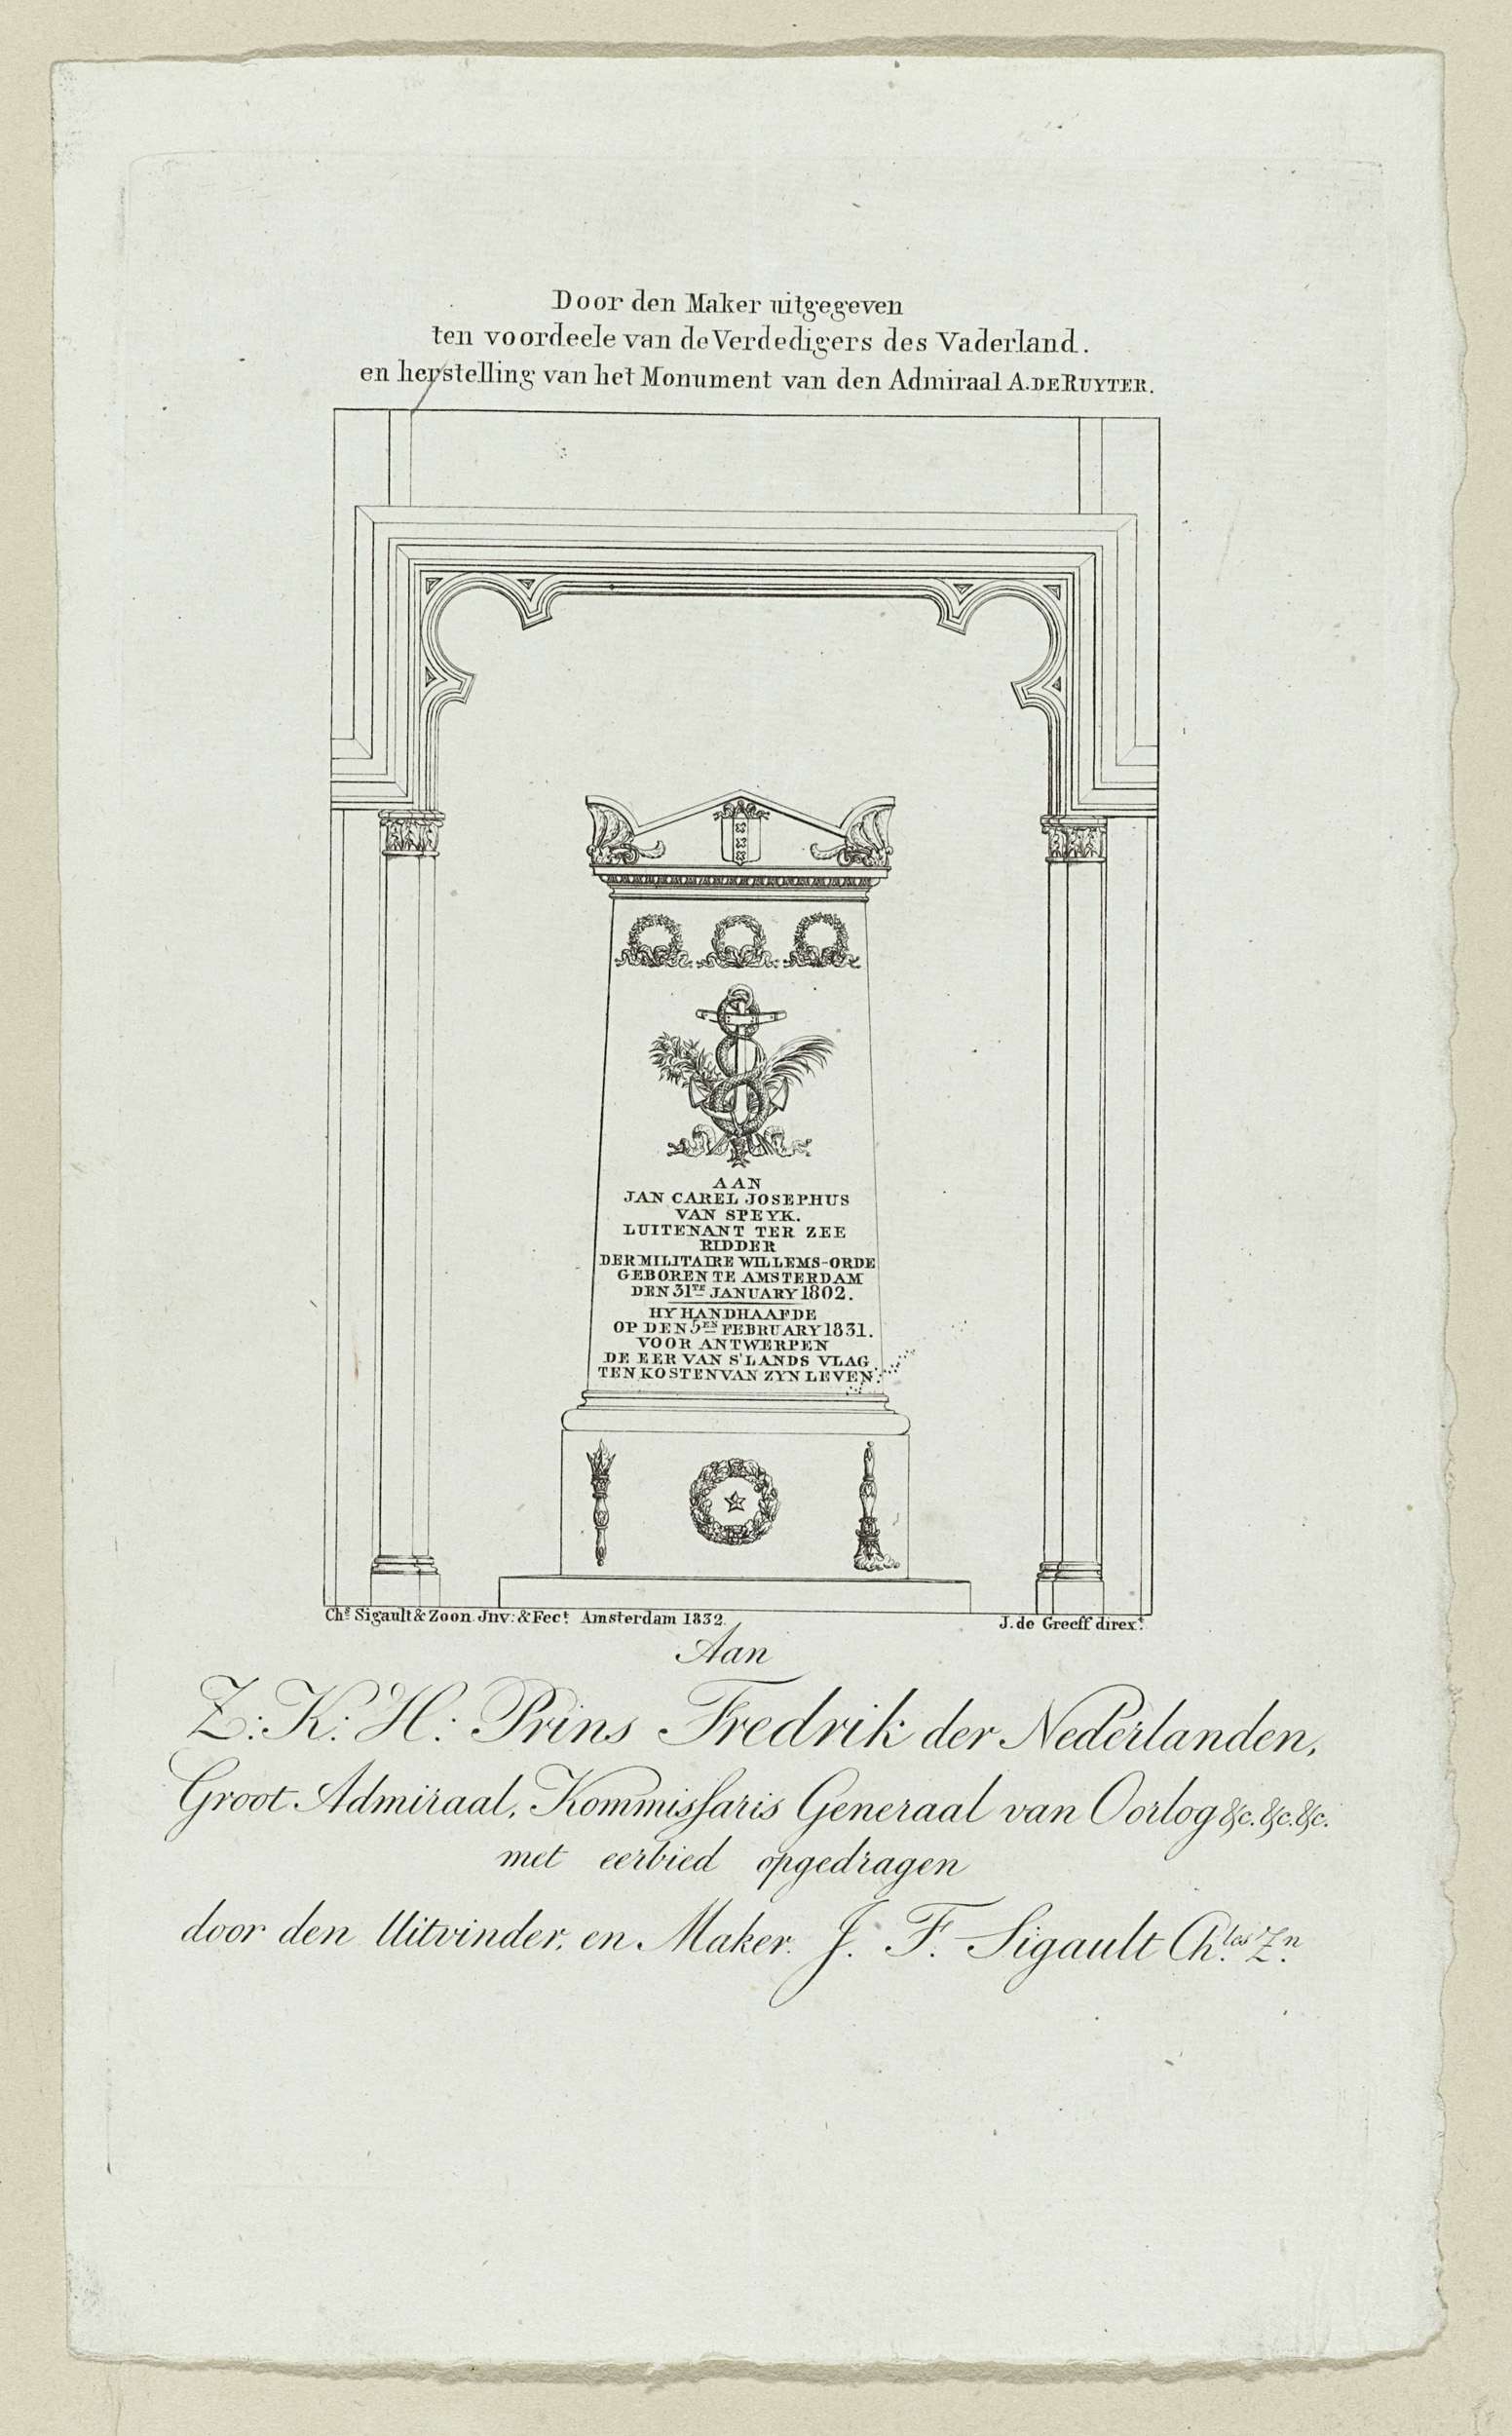 Door den Maker uitgegeven
ten voordeele van de Verdedigers des Vaderland.
en herstelling van het Monument van den Admiraal A. DE RUYTER.
AAN
JAN CAREL JOSEPHUS
VAN SPEYK.
LUITENANT TER ZEE
RIDDER
DER MILITAIRE WILLEMS-ORDE
GEBOREN TE AMSTERDAM
DEN 31TE JANUARY 1802.
HY HANDHAAFDE
OP DEN 5EN FEBRUARY 1831.
VOOR ANTWERPEN
DE EER VAN S'LANDS VLAG
TEN KOSTEN VAN ZYN LEVEN.
Chs Sigault & Zoon Jnv: & Fect. Amsterdam 1832.
J. de Greeff dirext.
Aan
Z: K: H: Prins Fredrik der Nederlanden,
Groot Admiraal, Kommissaris Generaal van Oorlog &c. &c. &c.
met eerbied opgedragen
door den Uitvinder, en Maker. J. F. Sigault Ch.les Z.n